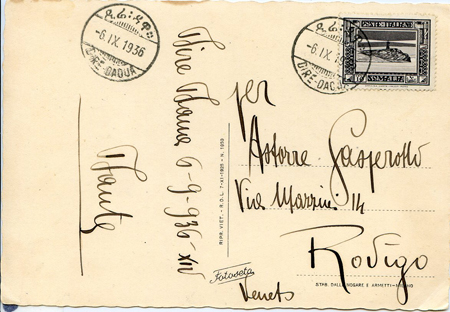 -6.IX.1936
DIRE-DAOUA
-6.IX.1936
DIRE-DAOUA
POSTE ITALIANE
SOMALIA
Dire Daua 6-9-936-XIV
RIPR. VIET. - R.O.L. 7-XI-1925 - N.
Fotoseta
per
Astorre Gasperotto
Via Mazzini 14
Rovigo
Veneto
STAB. DALLE NOGARE E ARMETTI - MILANO